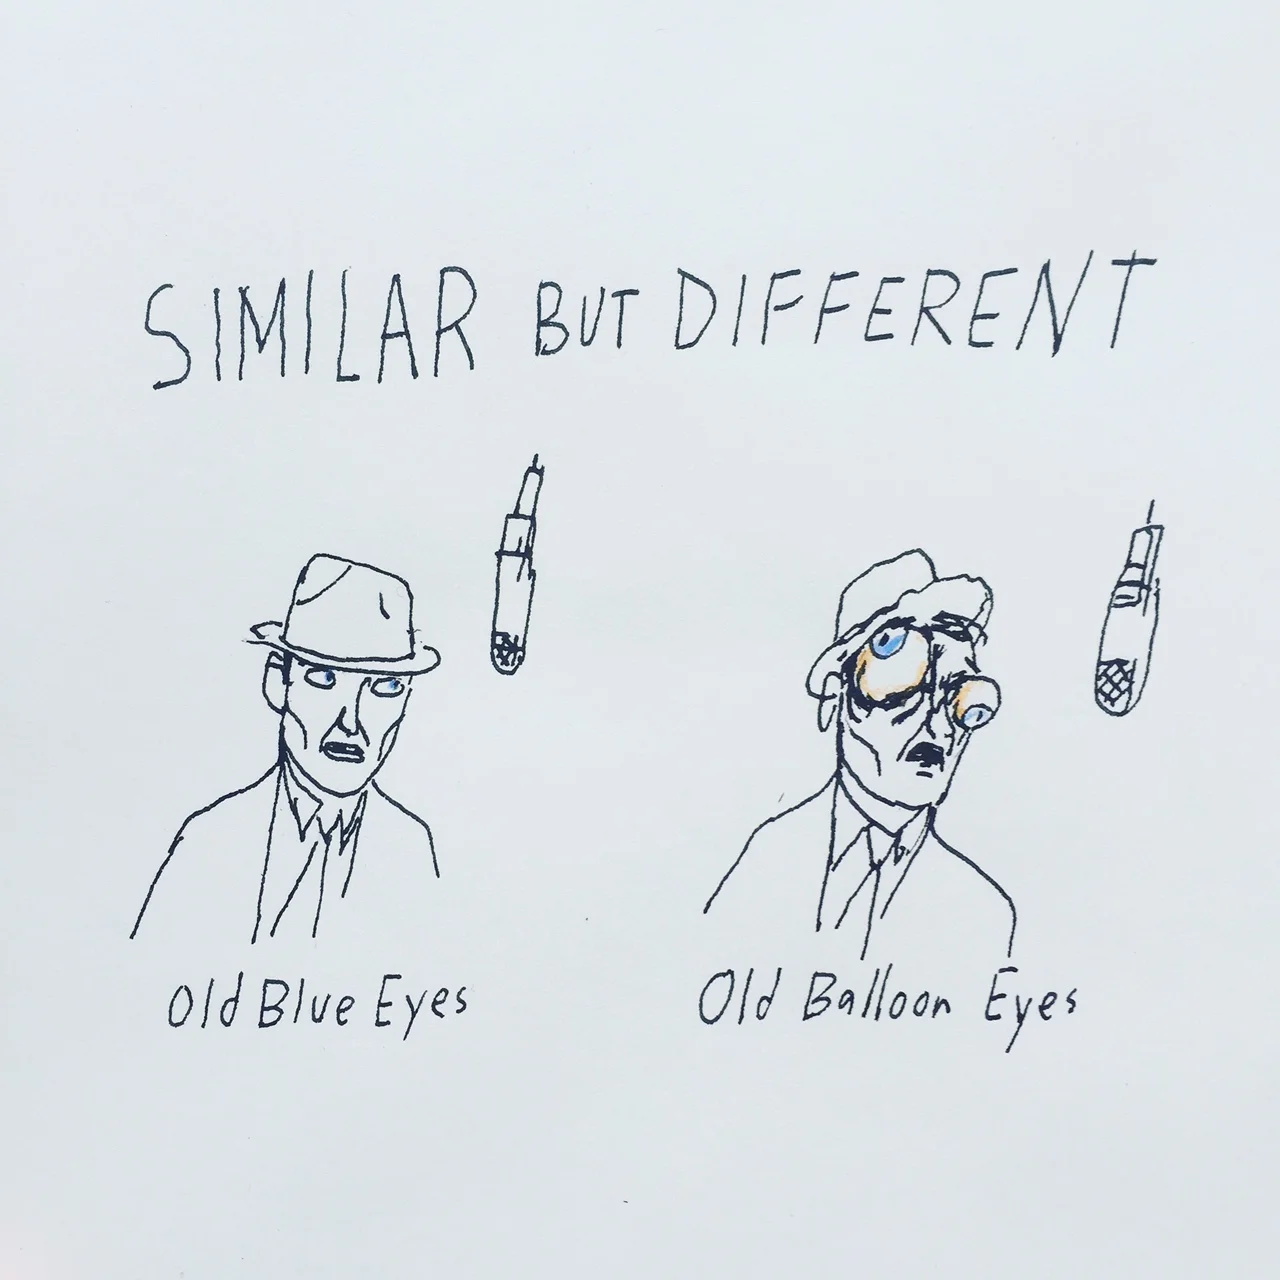 SIMILAR BUT DIFFERENT
Old Blue Eyes
Old Balloon Eyes